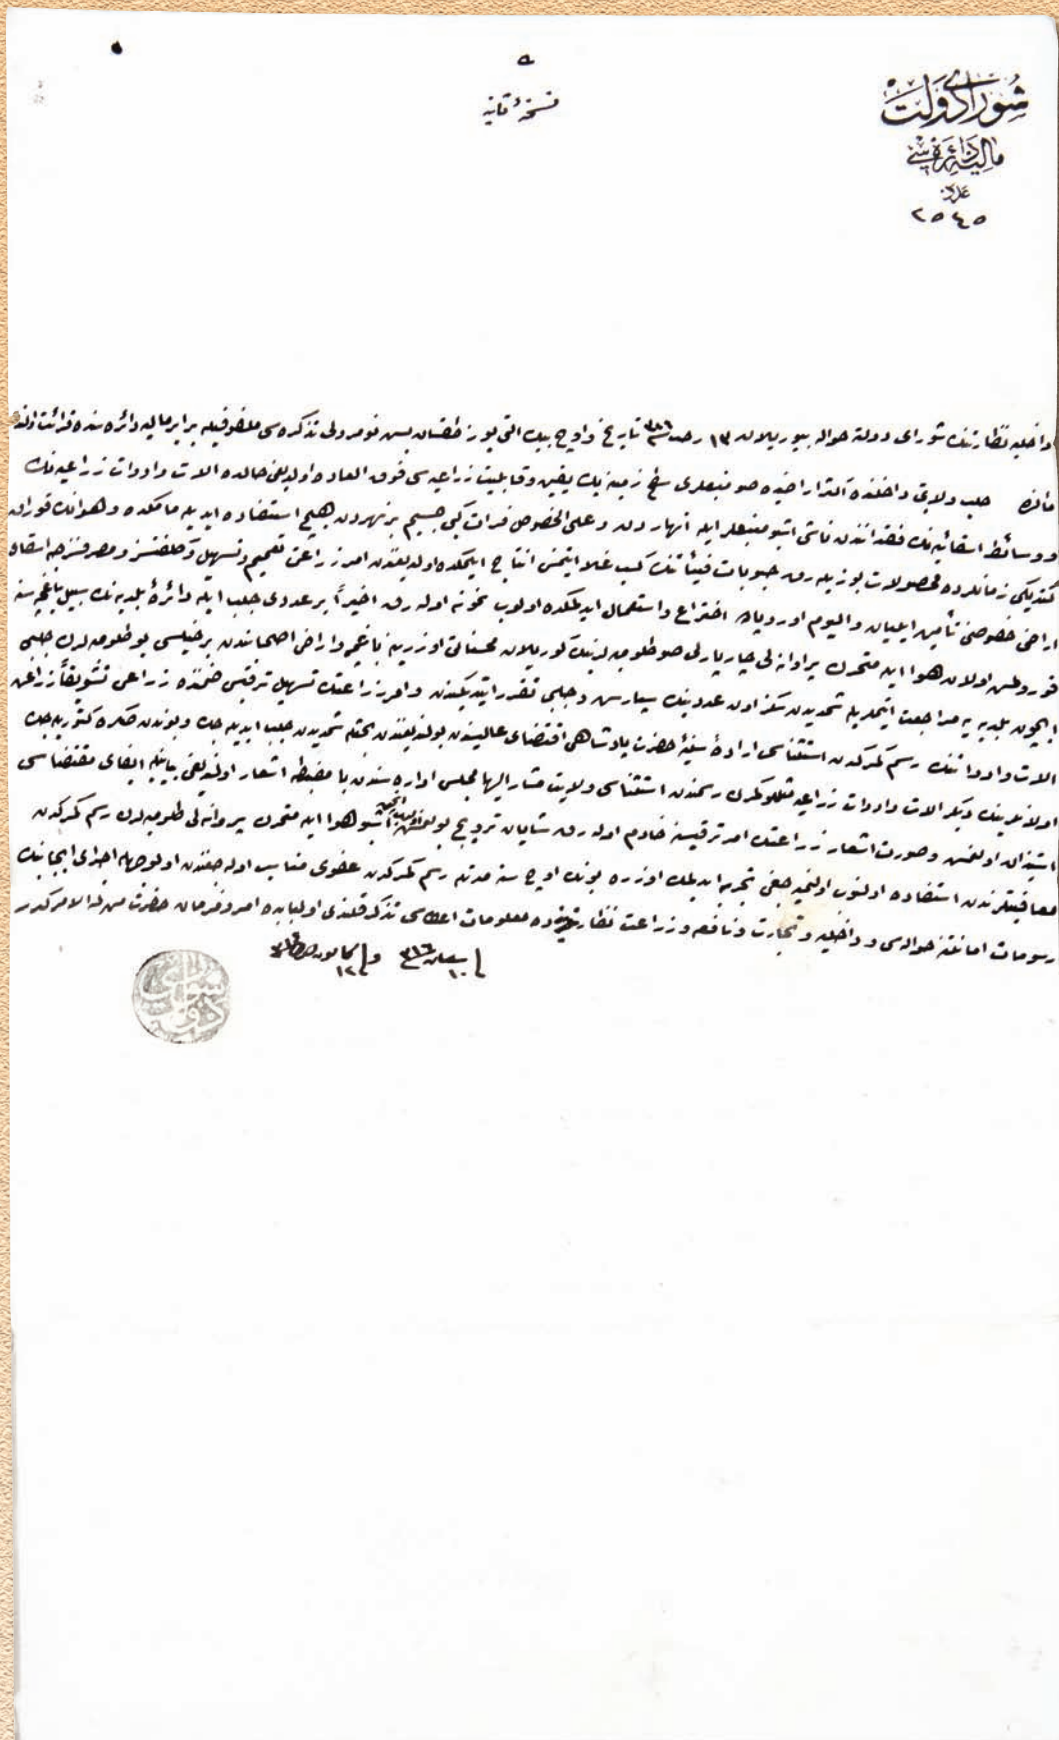 شورای دولت
مالیه دائره‌سی
عدد
٢٥٤٥
نسخهٔ ثانیه
داخلیه نظارتنك شورای دولته حواله بیوریلان ١٣ رجب تاریخ و اوچ بیك التی یوز طقسان بش نومرولی تذکره‌سی ملفوفیله برابر مالیه دائره‌سنده قرائت اولندی
حلب ولایتی داخلنده اراضیده صو منبعلری سطح زمینه پك یقین وقابلیت زراعیه‌سی فوق العاده اولدیغی حالده الات وادوات زراعیه‌نك
ووسائط اسقائیه‌نك فقداندن ناشی اشبو منبعلر ایله انهاردن وعلی الخصوص فرات کبی جسیم بر نهردن هیچ استفاده ایدیله‌مامکده وهوانك قوراق
کیتدیکی زمانلرده محصولات بوزیله‌رق حبوبات فیئاتنك کسب غلا ایتمسنی انتاج ایلمکده اولدیغندن امر زراعتی تعمیم وتسهیل وکلفتسز ومصرفسزجه اسقای
اراضی خصوصنی تأمین ایلیان والیوم اوروپاده اختراع واستعمال ایدیلمکده اولوب نمونه اوله‌رق اخیراً بر عددی جلب ایله دائرهٔ بلدیه‌نك سبیل باغچه‌سنه
قورولمش اولان هوا ایله متحرك پروانه‌لی صو طلومبه‌لرینك کوریلان محسناتی اوزرینه باغچه واراضی اصحابندن بر خیلیسی بو طلومبه‌لردن جلبی
ایچون بلدیه‌یه مراجعت ایتمکده شمدیدن سکز اون عددینك سپارش وجلبی تقرر ایتدیکندن وامر زراعتك تسهیل ترقیسی ضمننده زراعی تشویقاً زراعی
الات وادواتنك رسم کمرکدن استثناسی ارادهٔ سنیهٔ حضرت پادشاهی اقتضای عالیسندن بولندیغندن شمدیدن جلب ایدیله‌جك وبوندن صکره کتوریله‌جك
اولانلرینك دیکر الات وادوات زراعیه مثللو کمرك رسمندن استثناسی ولایت مشار الیها مجلس اداره‌سندن با مضبطه اشعار اولندیغی بیانیله ایفای مقتضاسی
استیذان اولنمش وصورت اشعار زراعتك امر ترقیسنه خادم اوله‌رق شایان ترویج بولنمش اشبو هوا ایله متحرك پروانه‌لی طلومبه‌لردن رسم کمرکدن
معافیتلرندن استفاده اولنوب اولنمیه‌جغی تجربه ایدلمك اوزره بونك اوچ سنه مدتله رسم کمرکدن عفوی مناسب اوله‌جغندن اولوجهله اجرای ایجابنك
رسومات امانتنه حواله‌سی و داخلیه و تجارت ونافعه وزراعت نظارتلرینه‌ده معلومات اعطاسی تذکر قلندی اولبابده امر وفرمان حضرت من له الامرکدر
شورای دولت